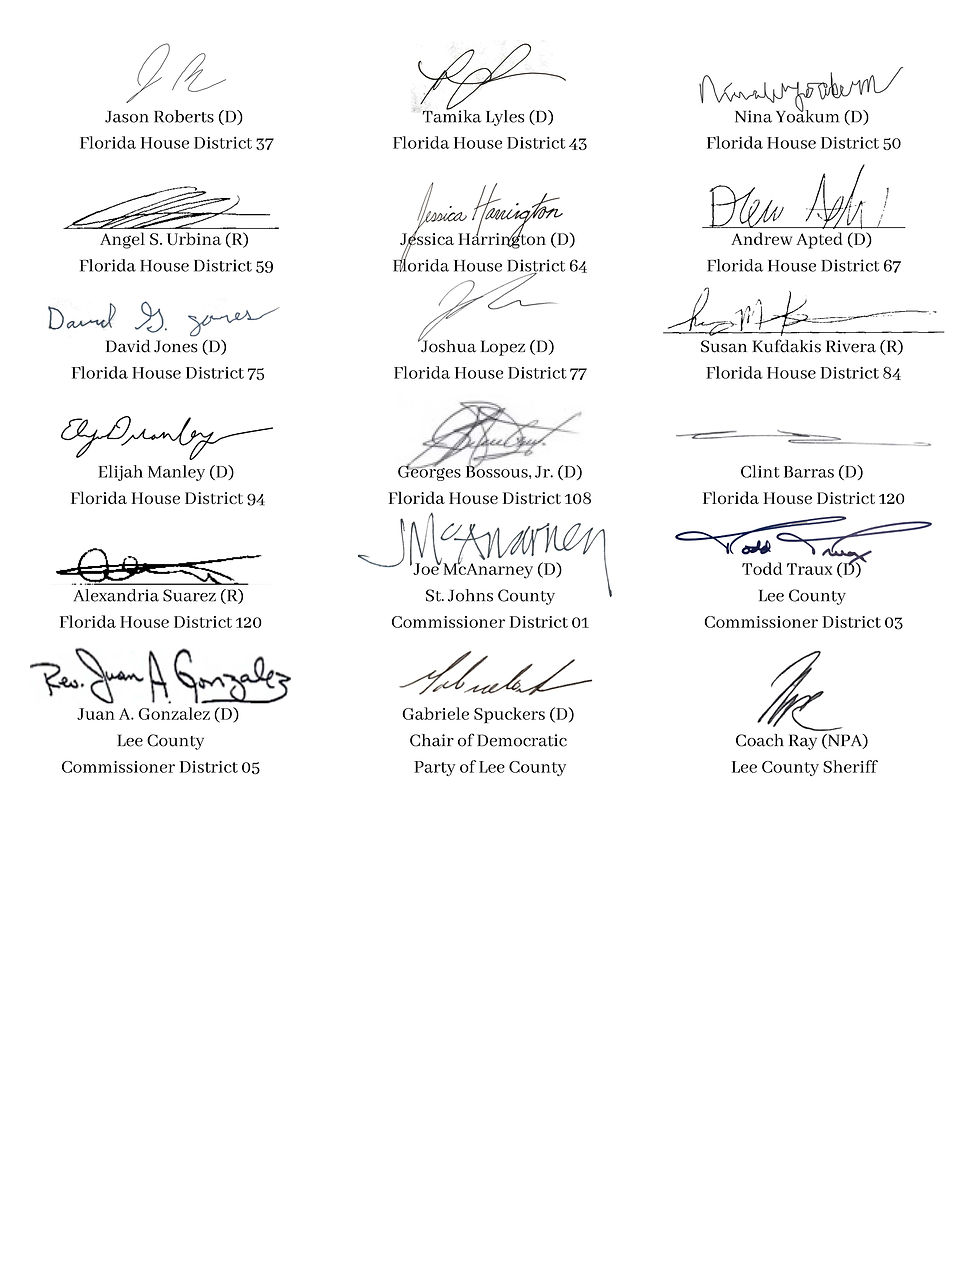 Jason Roberts (D)
Florida House District 37
Tamika Lyles (D)
Florida House District 43
Nina Yoakum
Nina Yoakum (D)
Florida House District 50
Angel S. Urbina (R)
Florida House District 59
Jessica Harrington
Jessica Harrington (D)
Florida House District 64
Drew
Andrew Apted (D)
Florida House District 67
David G. Jones
David Jones (D)
Florida House District 75
Joshua Lopez (D)
Florida House District 77
Susan Kufdakis Rivera (R)
Florida House District 84
Elijah Manley (D)
Florida House District 94
Georges Bossous, Jr. (D)
Florida House District 108
Clint Barras (D)
Florida House District 120
Alexandria Suarez (R)
Florida House District 120
JMcAnarney
Joe McAnarney (D)
St. Johns County
Commissioner District 01
Todd Truax
Todd Traux (D)
Lee County
Commissioner District 03
Rev. Juan A. Gonzalez
Juan A. Gonzalez (D)
Lee County
Commissioner District 05
Gabriele Spuckers (D)
Chair of Democratic
Party of Lee County
Coach Ray (NPA)
Lee County Sheriff